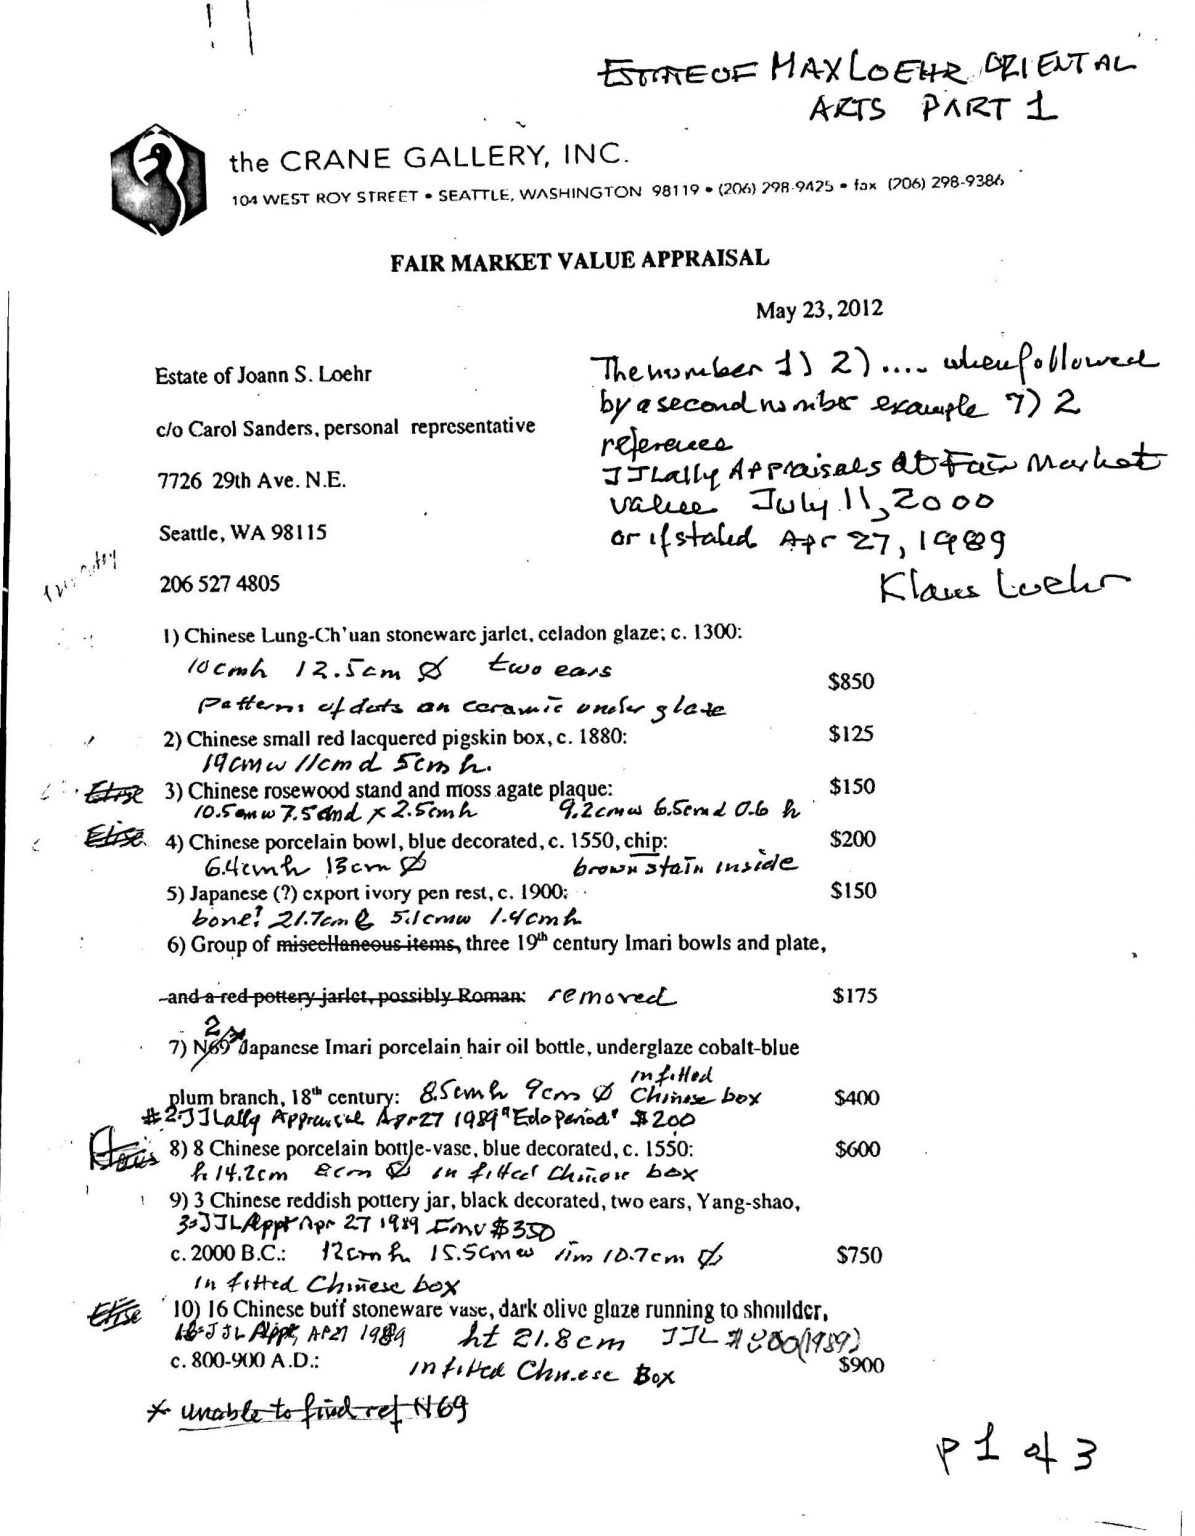 ESTATE OF MAX LOEHR ORIENTAL
ARTS PART 1
the CRANE GALLERY, INC.
104 WEST ROY STREET • SEATTLE, WASHINGTON 98119 • (206) 298-9425 • fax (206) 298-9386
FAIR MARKET VALUE APPRAISAL
May 23, 2012
Estate of Joann S. Loehr
c/o Carol Sanders, personal representative
7726 29th Ave. N.E.
Seattle, WA 98115
206 527 4805
The number 1) 2) .... when followed
by a second number example 7) 2
references
JJLally Appraisals at Fair Market
value July 11, 2000
or if stated Apr 27, 1989
Klaus Loehr
1) Chinese Lung-Ch'uan stoneware jarlet, celadon glaze; c. 1300:
10cmh 12.5cm Ø two ears
$850
Patterns of dots on ceramic under glaze
2) Chinese small red lacquered pigskin box, c. 1880: $125
19cmw 11cm d 5cm h.
Elise 3) Chinese rosewood stand and moss agate plaque: $150
10.5cmw 7.5cmd x 2.5cmh 9.2cmw 6.5cmd 0.6 h
Elise 4) Chinese porcelain bowl, blue decorated, c. 1550, chip: $200
6.4cmh 13cm Ø brown stain inside
5) Japanese (?) export ivory pen rest, c. 1900: $150
bone? 21.7cm l 5.1cmw 1.4cmh
6) Group of miscellaneous items, three 19th century Imari bowls and plate,
and a red pottery jarlet, possibly Roman: removed $175
2
7) N69* Japanese Imari porcelain hair oil bottle, underglaze cobalt-blue
in fitted
plum branch, 18th century: 8.5cmh 9cm Ø Chinese box $400
#2-JJLally Appraisal Apr 27 1989 "Edo Period" $200
Klaus 8) 8 Chinese porcelain bottle-vase, blue decorated, c. 1550: $600
h 14.2cm 8cm Ø in fitted Chinese box
9) 3 Chinese reddish pottery jar, black decorated, two ears, Yang-shao,
3=JJL Appr Apr 27 1989 FMV $350
c. 2000 B.C.: 12cm h 15.5cmw rim 10.7cm Ø $750
in fitted Chinese box
Elise 10) 16 Chinese buff stoneware vase, dark olive glaze running to shoulder,
16=JJL Appr, AP27 1989 ht 21.8cm JJL $800(1989)
c. 800-900 A.D.: in fitted Chinese Box $900
* unable to find ref N69
p 1 of 3